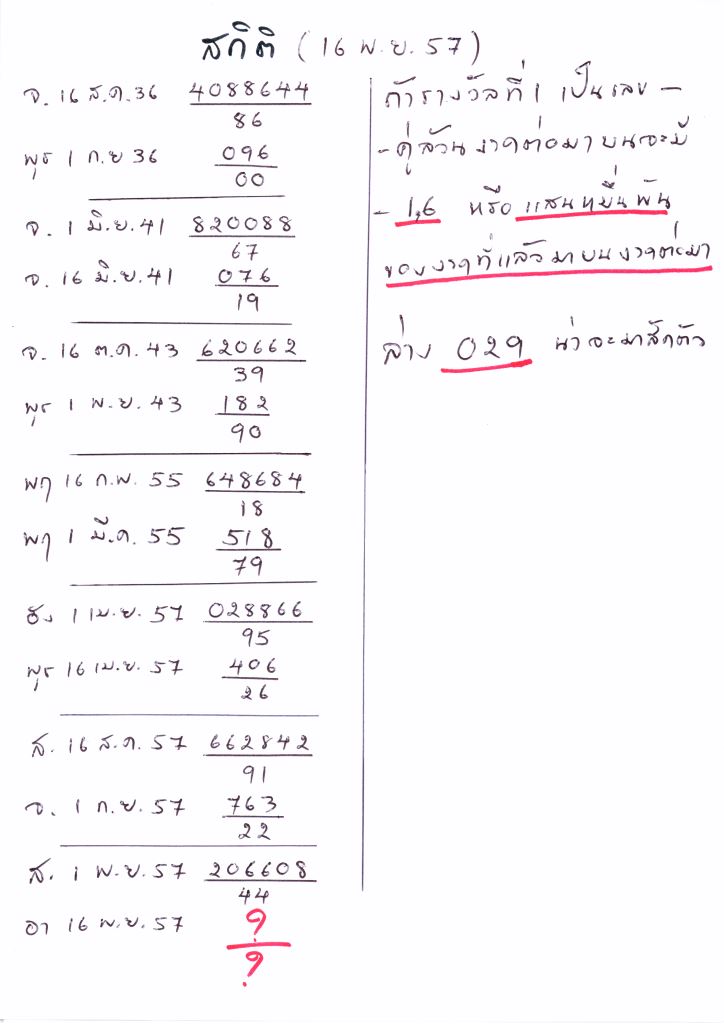 สถิติ (16 พ.ย. 57)
จ. 16 ส.ค. 36 4088644
86
พุธ 1 ก.ย 36 096
00
จ. 1 มิ.ย. 41 820088
67
จ. 16 มิ.ย. 41 076
19
จ. 16 ต.ค. 43 620662
39
พุธ 1 พ.ย. 43 182
90
พฤ 16 ก.พ. 55 648684
18
พฤ 1 มี.ค. 55 518
79
อัง 1 เม.ย. 57 028866
95
พุธ 16 เม.ย. 57 406
26
ส. 16 ส.ค. 57 662842
91
จ. 1 ก.ย. 57 763
22
ส. 1 พ.ย. 57 206608
44
อา 16 พ.ย. 57 ?
?
ถ้ารางวัลที่ 1 เป็นเลข -
- คู่ล้วน งวดต่อมาบนจะมี
- 1,6 หรือ แสนหมื่นพัน
ของงวดที่แล้วมาบนงวดต่อมา
ล่าง 029 น่าจะมาสักตัว